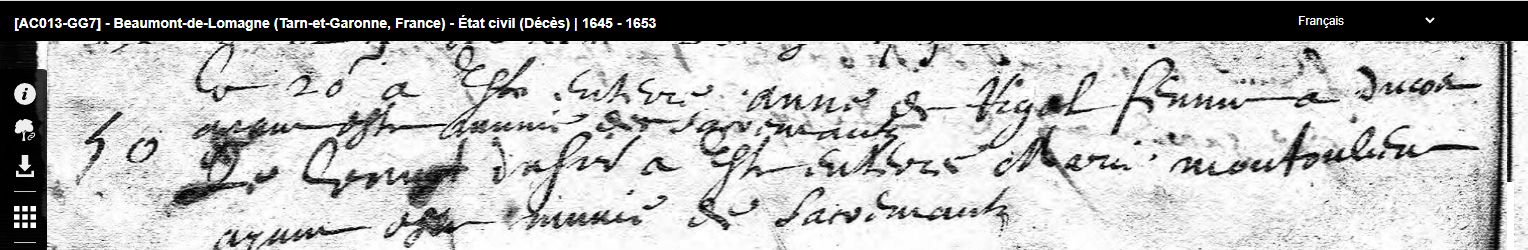 [AC013-GG7] - Beaumont-de-Lomagne (Tarn-et-Garonne, France) - État civil (Décès) | 1645 - 1653
Français
Le 20 a Este Enterre anne de Vigal femme a Ducos
ayant este munie des sacremants
50
Le dasvril a Este enterre Marie montoulieu
ayant este munie de sacremants